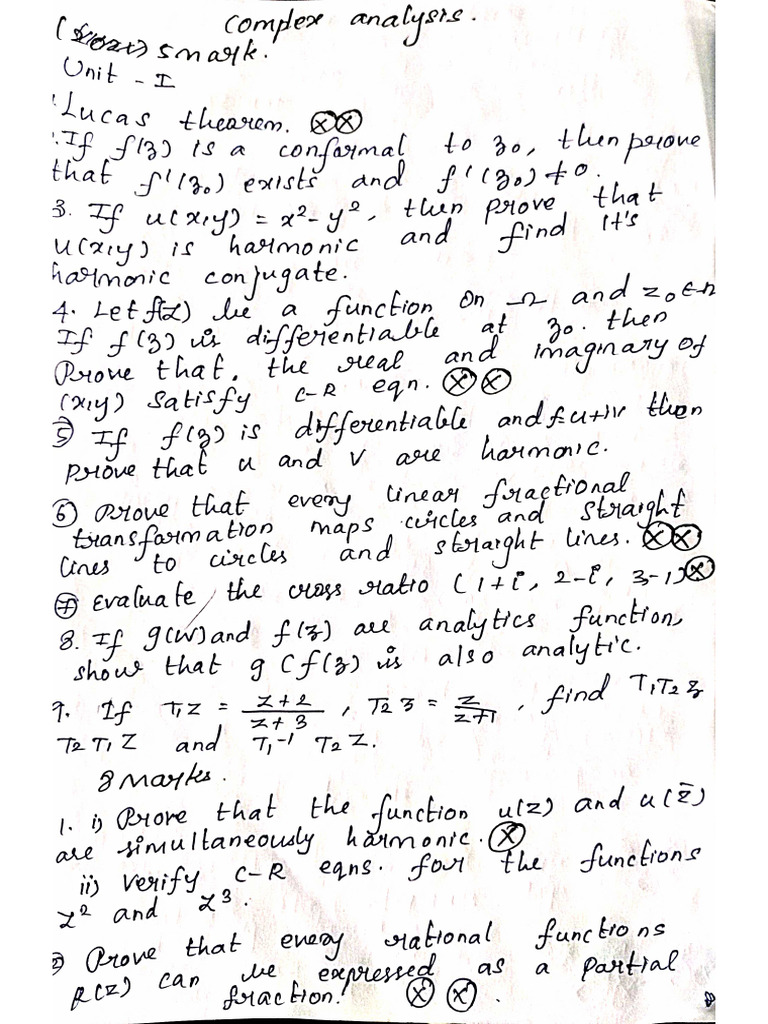 Complex analysis.
5 mark.
Unit - I
Lucas theorem. ⓧⓧ
If f(z) is a conformal to z0, then prove
that f'(z0) exists and f'(z0) ≠ 0.
3. If u(x,y) = x²-y², then prove that
u(x,y) is harmonic and find it's
harmonic conjugate.
4. Let f(z) be a function on Ω and z0 ∈ Ω
If f(z) is differentiable at z0. then
Prove that, the real and imaginary of
(x,y) satisfy C-R eqn. ⓧⓧ
⑤ If f(z) is differentiable and f=u+iv then
prove that u and v are harmonic.
⑥ Prove that every linear fractional
transformation maps circles and straight
lines to circles and straight lines. ⓧⓧ
⑦ Evaluate the cross ratio (1+i, 2-i, 3-1) ⓧ
8. If g(w) and f(z) are analytics function,
show that g(f(z) is also analytic.
9. If T1z = z+2/z+3, T2z = z/z+1, find T1T2z
T2T1z and T1⁻¹ T2z.
8 Marks.
1. i) Prove that the function u(z) and u(z̄)
are simultaneously harmonic. ⓧ
ii) Verify C-R eqns. for the functions
z² and z³.
② Prove that every rational functions
R(z) can be expressed as a partial
fraction. ⓧ ⓧ.